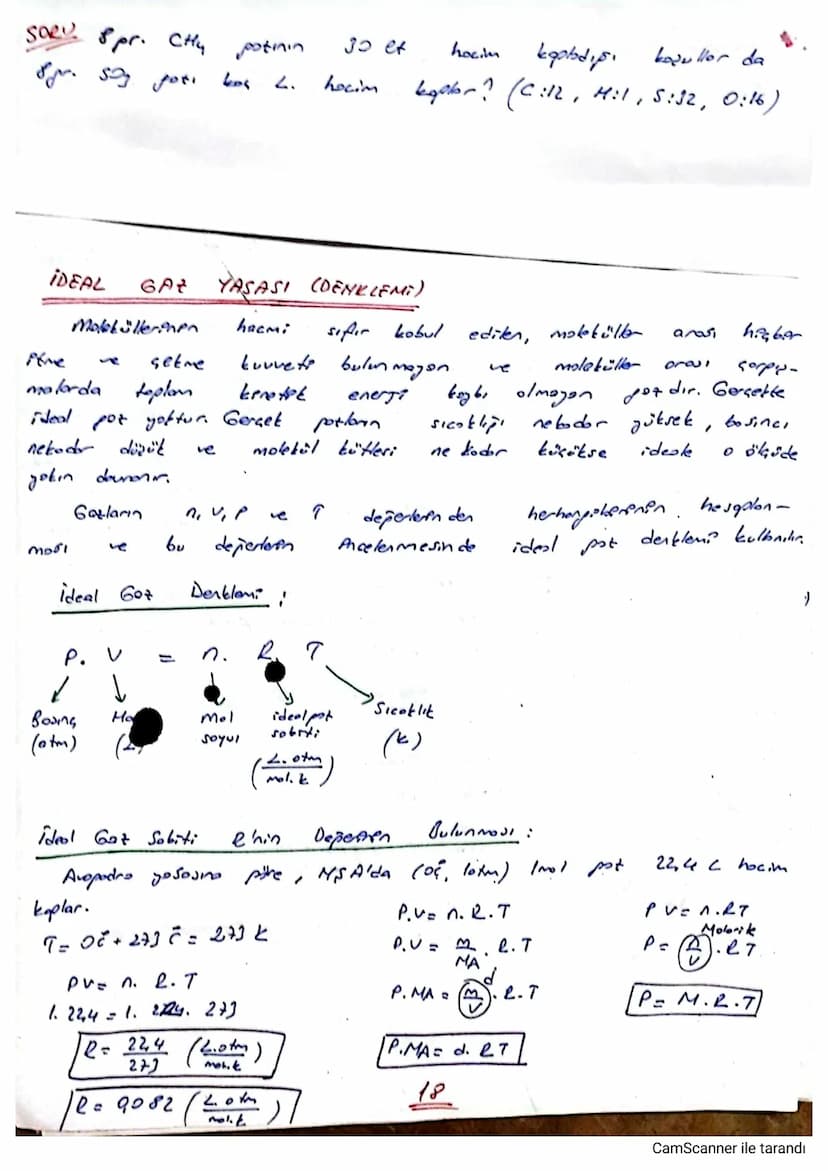 SORU 8 gr. CH4 gazının 30 lt hacim kapladığı koşullar da
8 gr. SO3 gazı kaç L. hacim kaplar? (C:12, H:1, S:32, O:16)
İDEAL GAZ YASASI (DENKLEMİ)
Moleküllerinin hacmi sıfır kabul edilen, moleküller arası hiçbir
itme ve çekme kuvveti bulunmayan ve moleküller arası çarpış-
malarda toplam kinetik enerji kaybı olmayan gazdır. Gerçekte
ideal gaz yoktur. Gerçek gazların sıcaklığı nekadar yüksek, basıncı
nekadar düşük ve molekül kütleri ne kadar küçükse ideale o ölçüde
yakın davranır.
Gazların n, V, P ve T değerlerinden herhangibirinin hesaplan-
ması ve bu değerlerin incelenmesinde ideal gaz denklemi kullanılır.
İdeal Gaz Denklemi:
P. V = n. R. T
Basınç (atm)
Mol sayısı
ideal gaz sabiti (L.atm / mol.k)
Sıcaklık (k)
İdeal Gaz Sabiti R'nin Değerinin Bulunması:
Avogadro yasasına göre, NŞA'da (0°C, 1 atm) 1mol gaz 22,4 L hacim
kaplar.
T = 0°C + 273°C = 273 k
PV = n. R. T
1. 22,4 = 1. 273
R = 22,4 / 273 (L.atm / mol.k)
R = 0,082 (L.atm / mol.k)
P.V = n. R. T
P.V = m / MA . R. T
P. MA = (m / V) d . R. T
P.MA = d. R T
P V = n. R T
P = (n / V) Molarite . R T
P = M. R. T
18
CamScanner ile tarandı